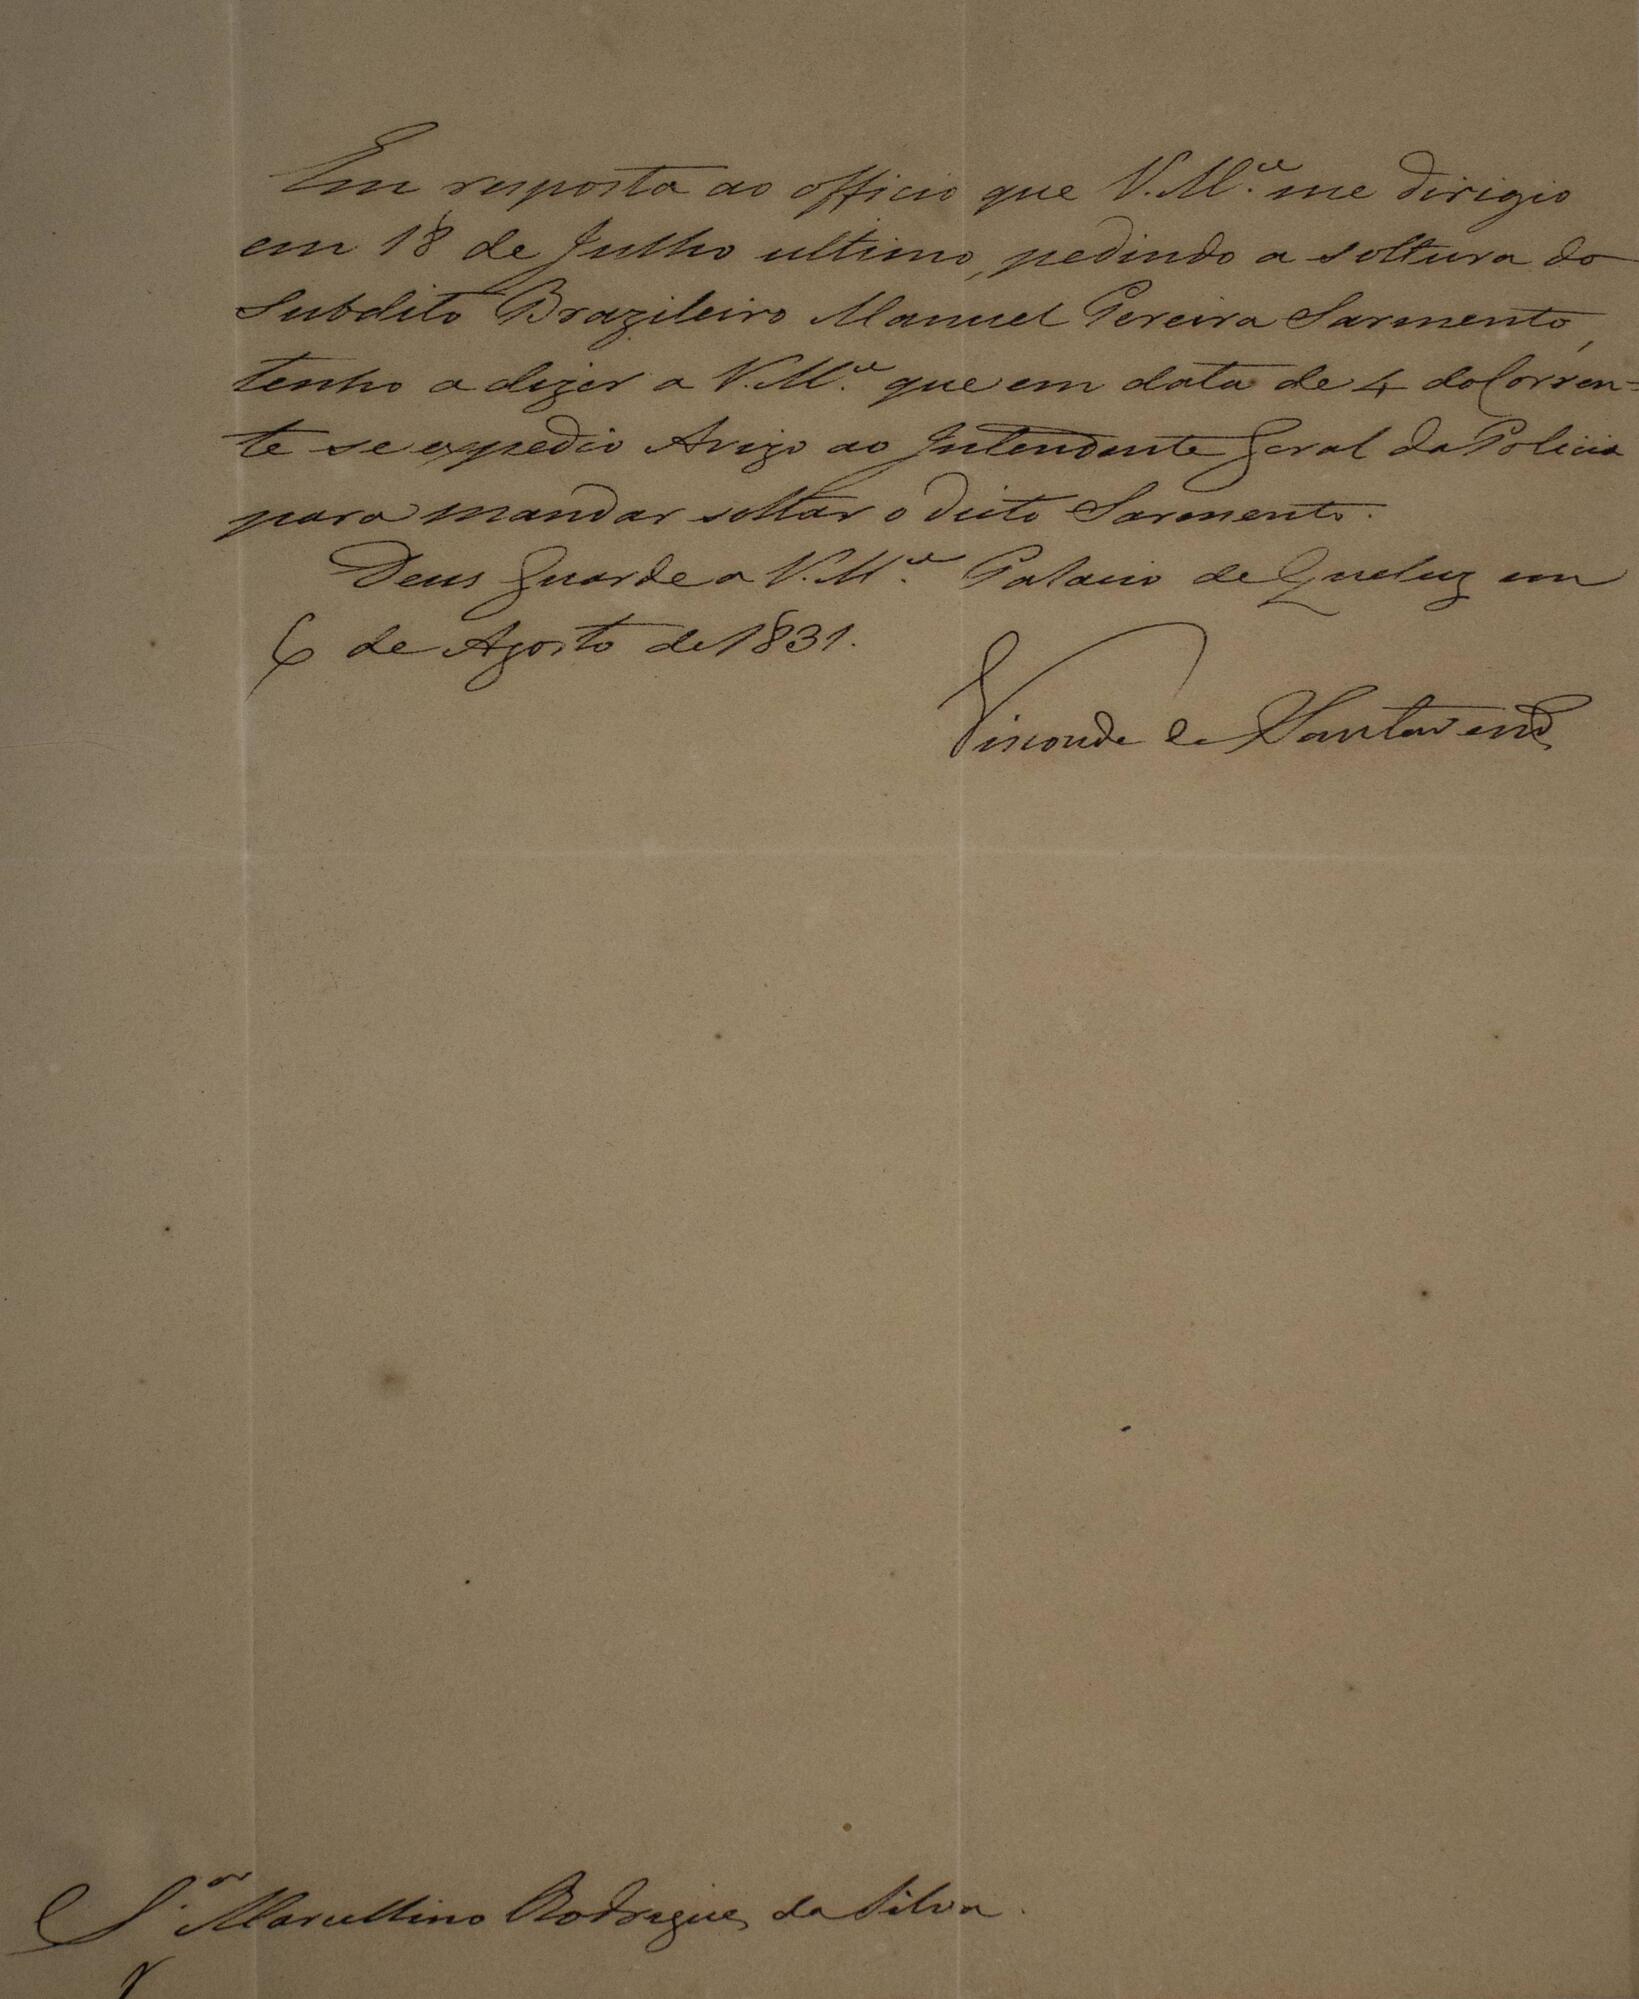 Em resposta ao officio que V. M.ce me dirigio
em 18 de Julho ultimo, pedindo a soltura do
Subdito Brazileiro Manuel Pereira Sarmento,
tenho a dizer a V. M.ce que em data de 4 do Corren=
te se expedio Avizo ao Intendente Geral da Policia
para mandar soltar o dicto Sarmento.
Deus Guarde a V. M.ce Palacio de Queluz em
6 de Agosto de 1831.
Visconde de Santarem
S.or Marcellino Rodrigues da Silva.